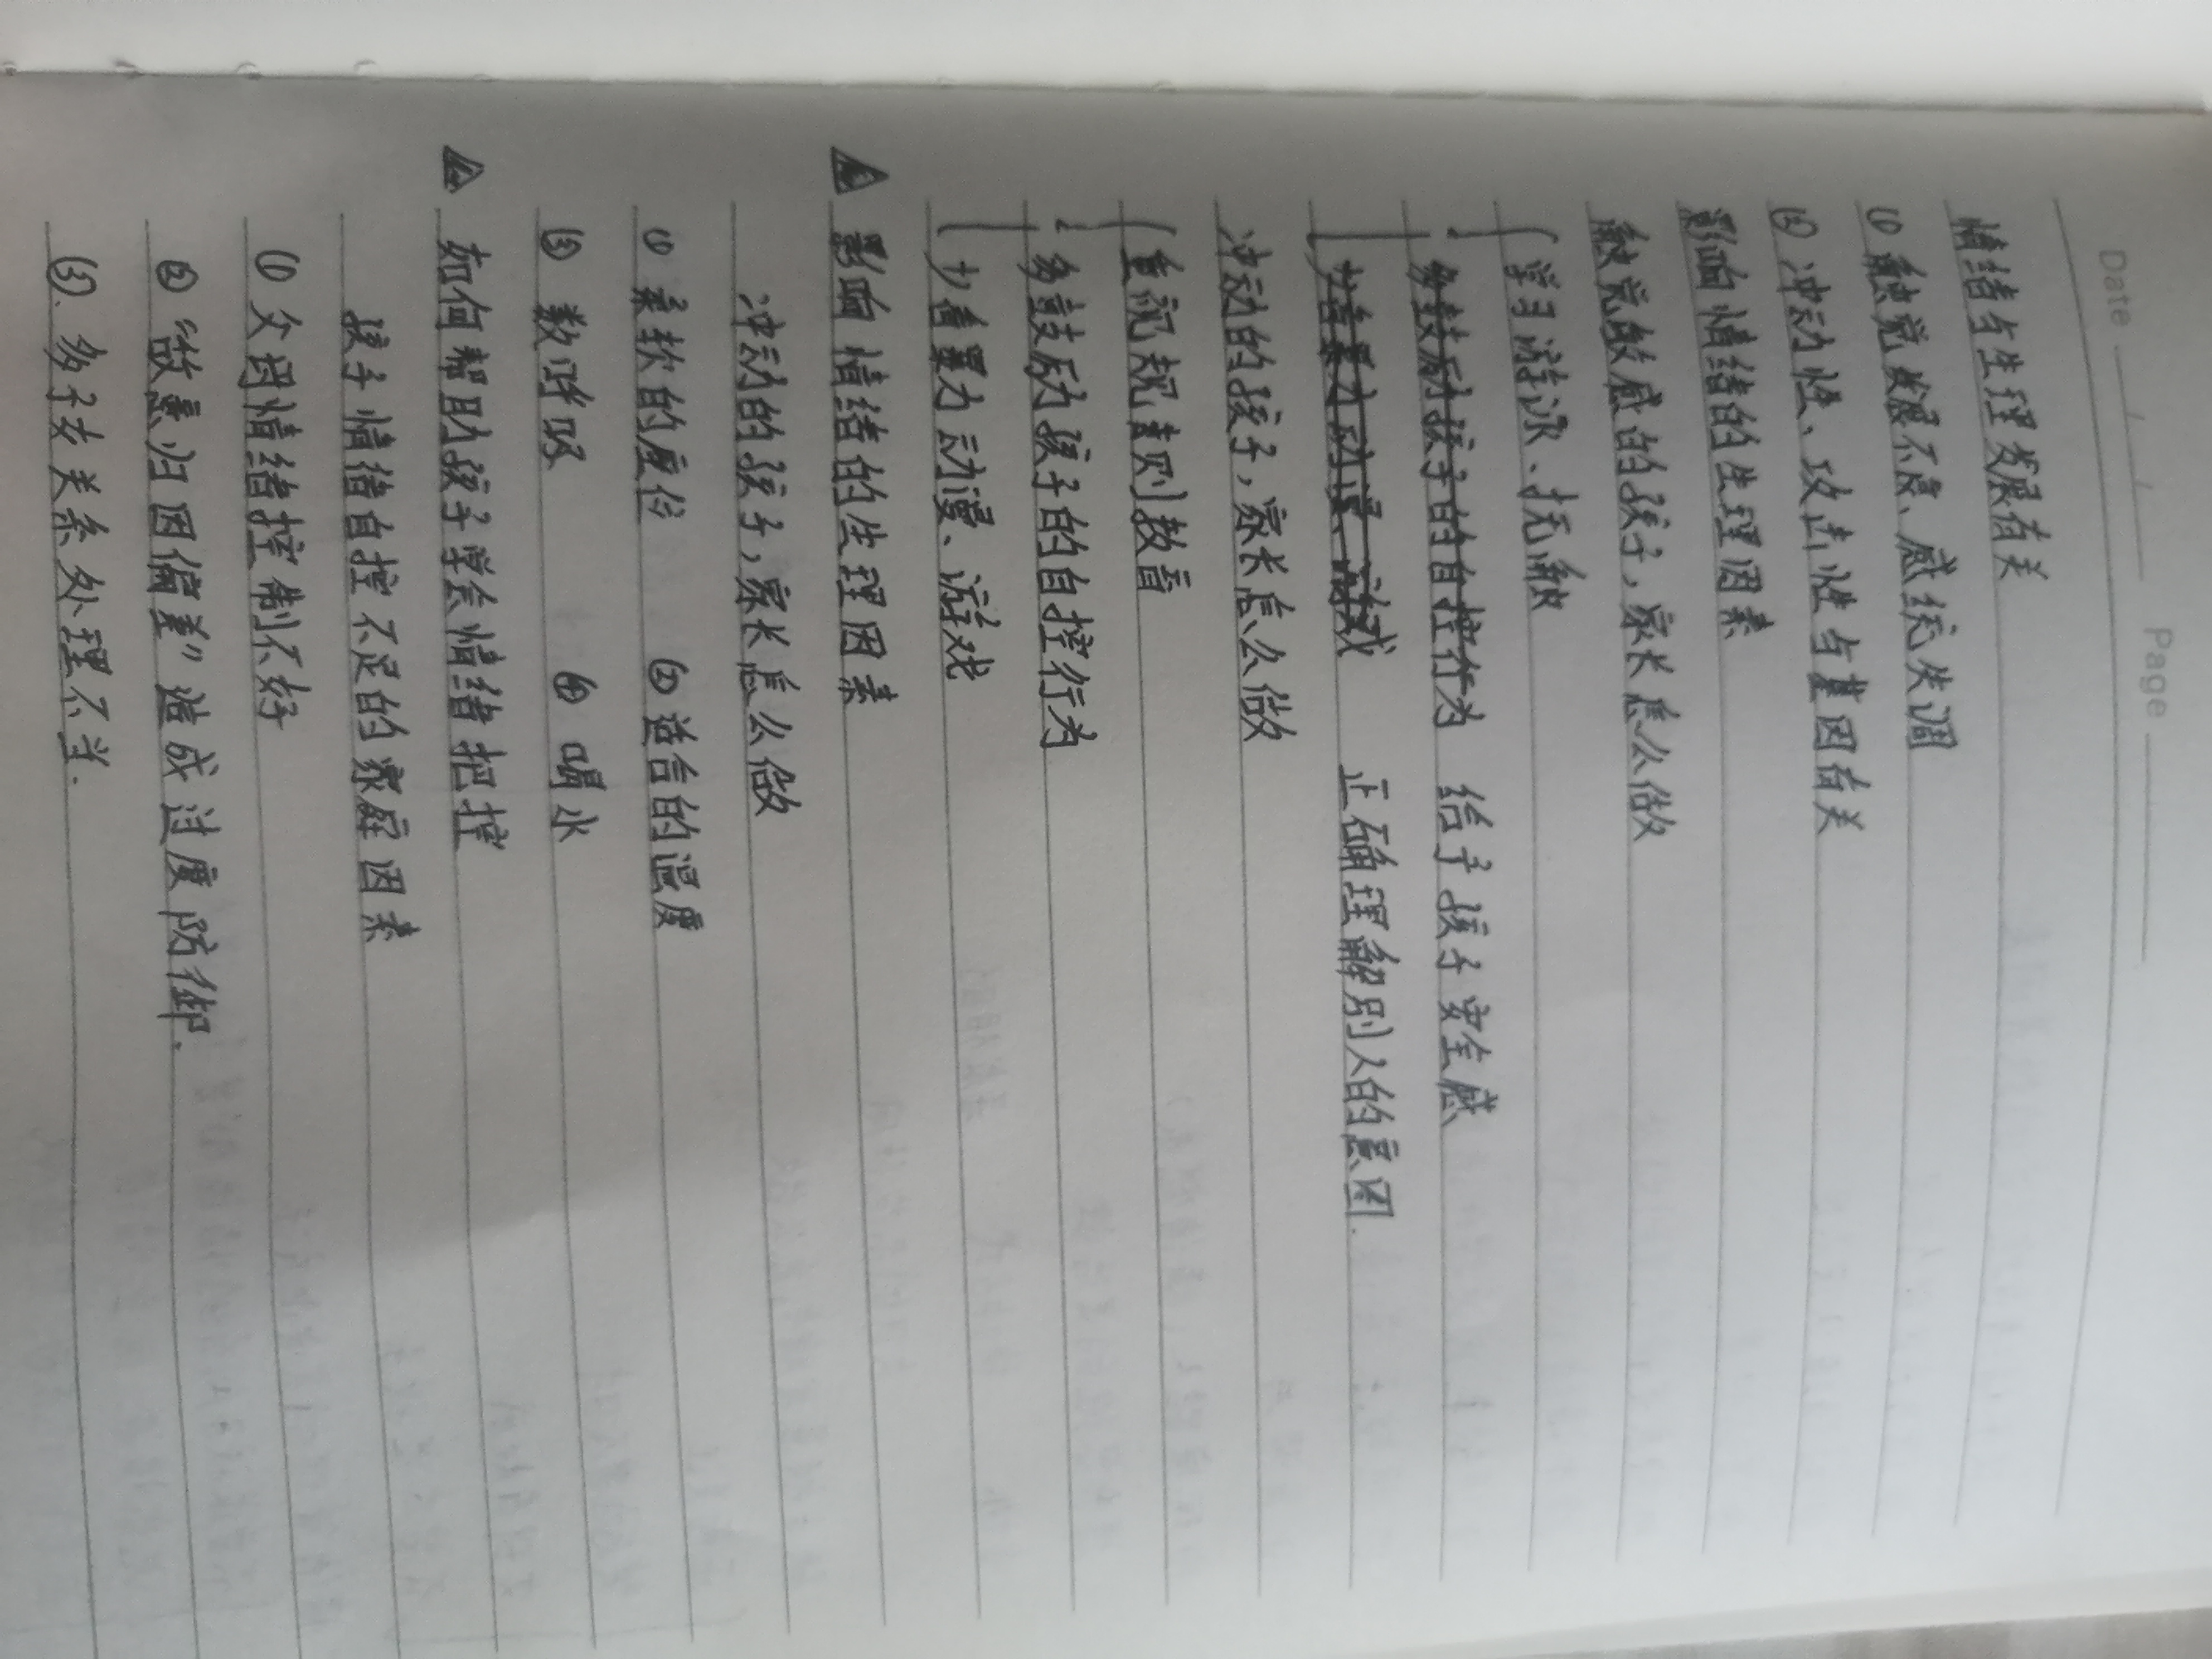 Date / / Page
情绪与生理发展有关
① 触觉发展不良、感统失调
② 冲动性、攻击性与基因有关
影响情绪的生理因素
触觉敏感的孩子,家长怎么做
学习游泳、抚触
多鼓励孩子的自控行为 给予孩子安全感
少看暴力动漫、游戏 正确理解别人的意图.
冲动的孩子,家长怎么做
重视规则教育
多鼓励孩子的自控行为
少看暴力动漫、游戏
影响情绪的生理因素
冲动的孩子,家长怎么做
① 柔软的身份 ② 语言的温度
③ 数呼吸 ④ 喝水
如何帮助孩子学会情绪把控
孩子情绪自控不足的家庭因素
① 父母情绪控制不好
② “敌意归因偏差”造成过度防御.
③. 多子女关系处理不当.